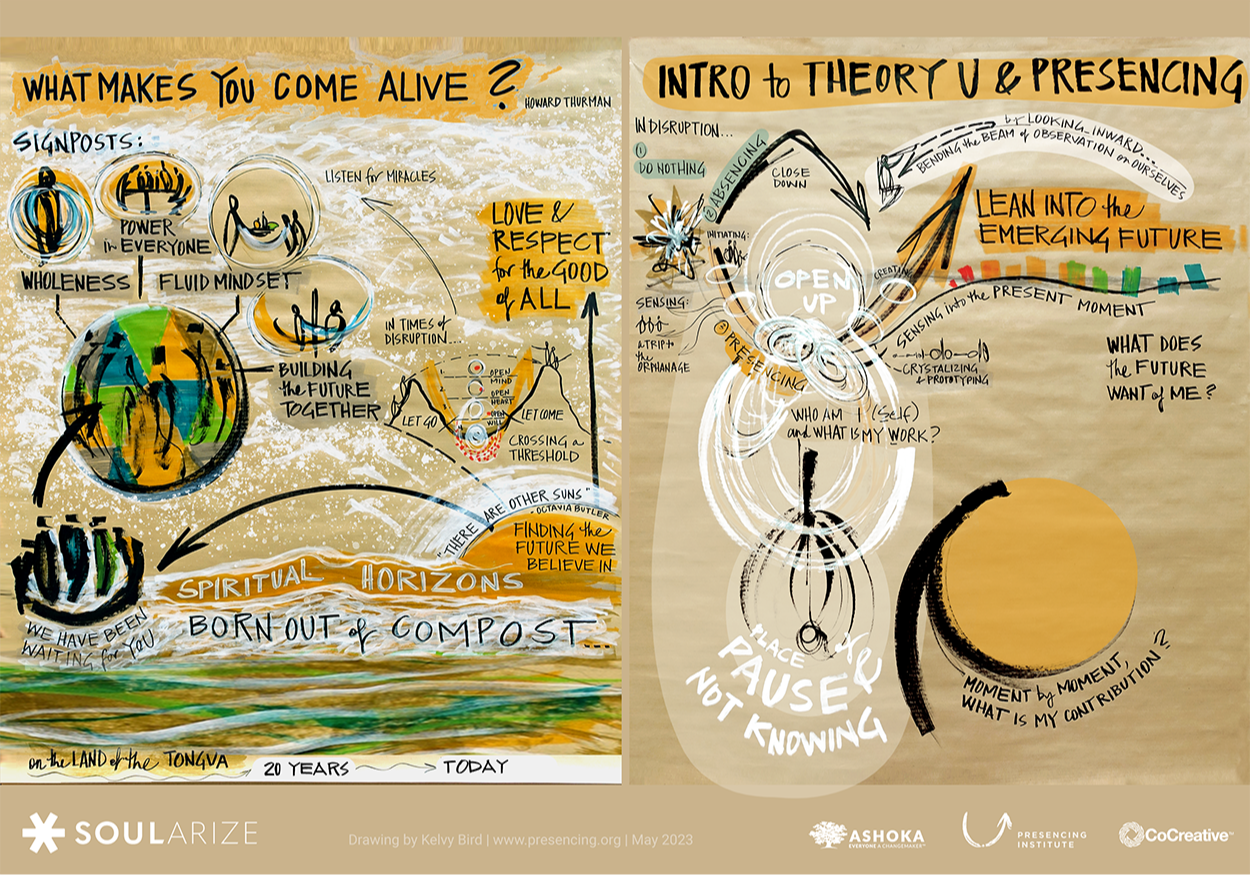 WHAT MAKES YOU COME ALIVE?
HOWARD THURMAN
SIGNPOSTS:
LISTEN for MIRACLES...
POWER
in EVERYONE
WHOLENESS
FLUID MINDSET
LOVE &
RESPECT
for the GOOD
of ALL
IN TIMES of
DISRUPTION...
BUILDING
the FUTURE
TOGETHER
OPEN
MIND
OPEN
HEART
OPEN
WILL
LET GO
LET COME
CROSSING a
THRESHOLD
"THERE ARE OTHER SUNS"
- OCTAVIA BUTLER
FINDING the
FUTURE WE
BELIEVE IN
SPIRITUAL HORIZONS
BORN OUT of COMPOST
WE HAVE BEEN
WAITING for YOU
on the LAND of the TONGVA
20 YEARS
TODAY
INTRO to THEORY U & PRESENCING
IN DISRUPTION...
①
DO NOTHING
② ABSENCING
CLOSE
DOWN
by LOOKING INWARD...
BENDING the BEAM of OBSERVATION on OURSELVES
LEAN INTO the
EMERGING FUTURE
INITIATING:
OPEN
UP
CREATING
SENSING:
a TRIP to
the
ORPHANAGE
③ PRESENCING
SENSING into the PRESENT MOMENT
CRYSTALIZING
& PROTOTYPING
WHAT DOES
the FUTURE
WANT of ME?
WHO AM I (Self)
and WHAT IS MY WORK?
PLACE
PAUSE &
NOT KNOWING
MOMENT by MOMENT,
WHAT IS MY CONTRIBUTION?
SOULARIZE
Drawing by Kelvy Bird | www.presencing.org | May 2023
ASHOKA
EVERYONE A CHANGEMAKER™
PRESENCING
INSTITUTE
CoCreative